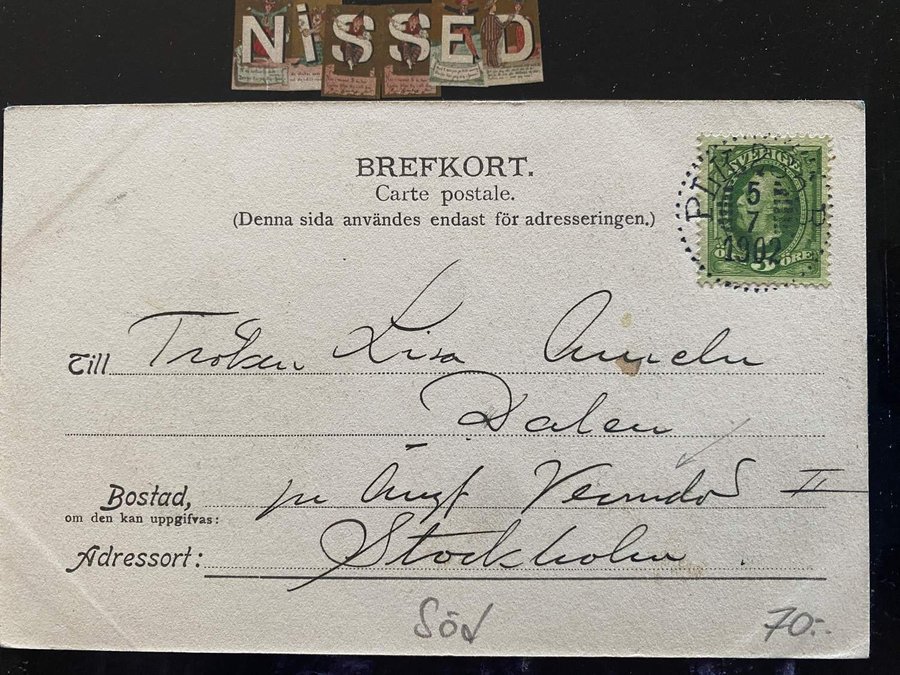 NiSSED
BREFKORT.
Carte postale.
(Denna sida användes endast för adresseringen.)
SVERIGE
5
7
1902
5 ÖRE
Till Fröken Lisa
Dalen
Bostad, pr Ångf Vermdö II
om den kan uppgifvas:
Adressort: Stockholm
Söd
70:-